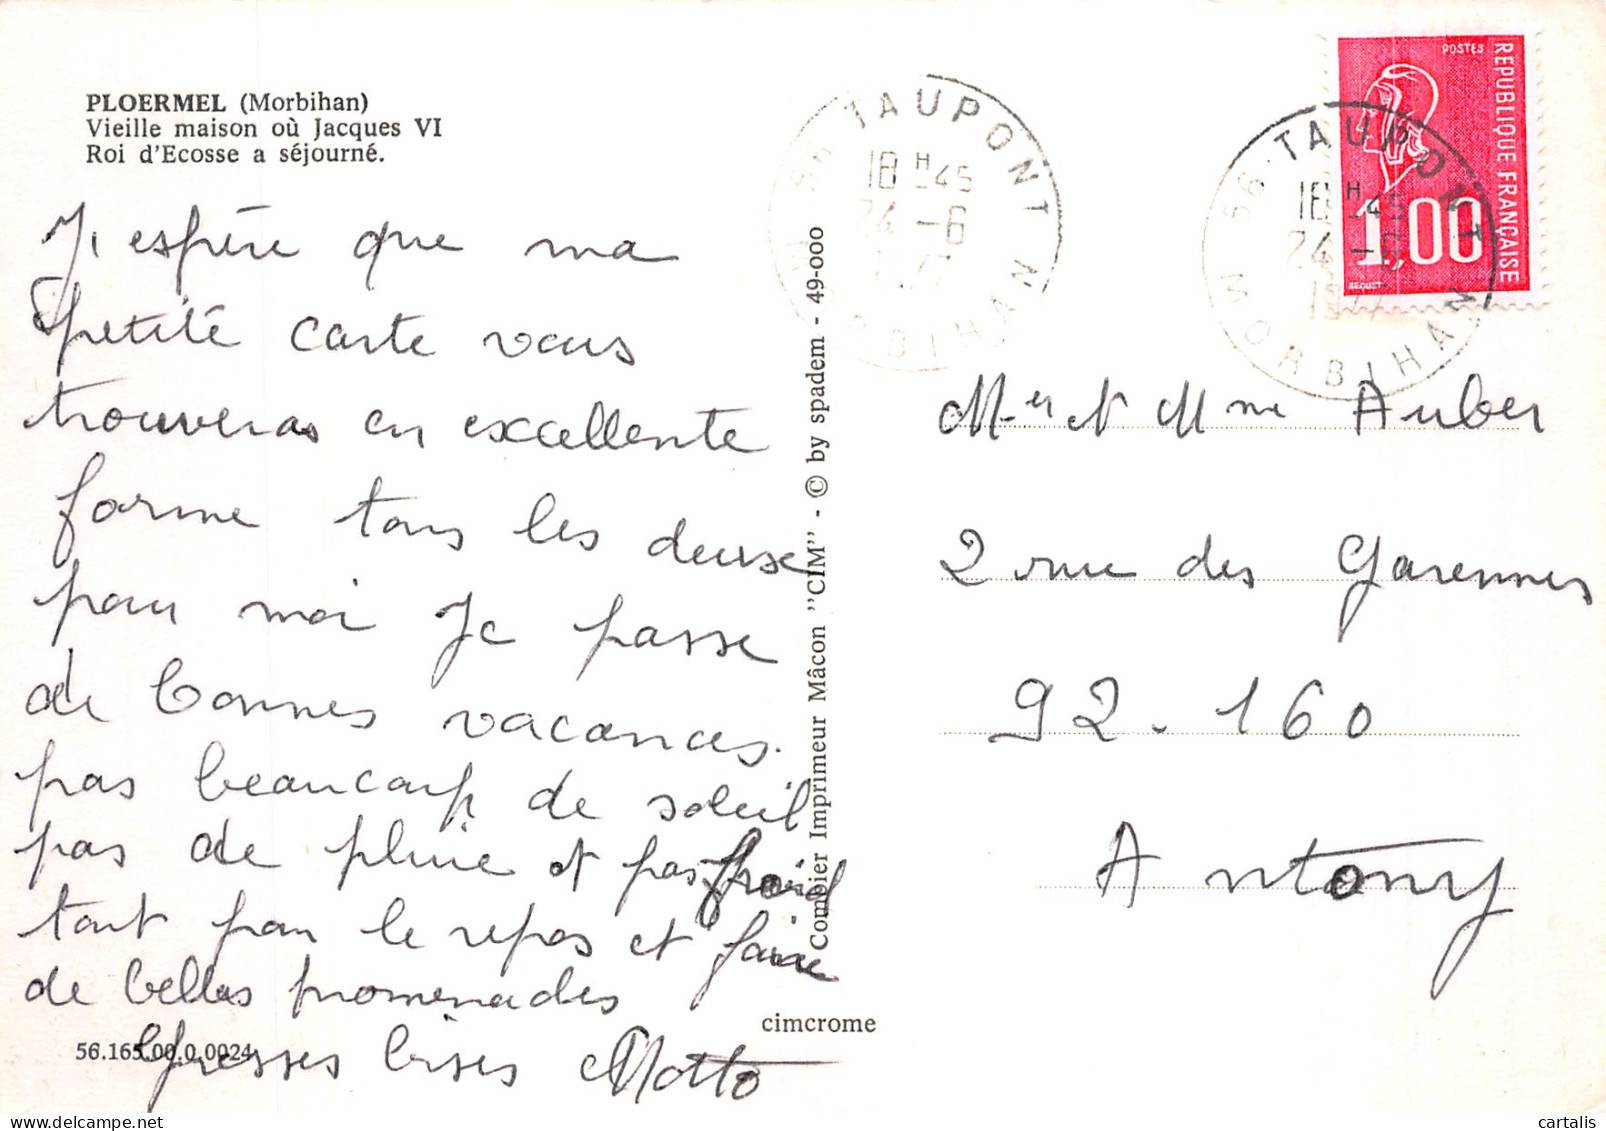 PLOERMEL (Morbihan)
Vieille maison où Jacques VI
Roi d'Ecosse a séjourné.
J'espère que ma
petite carte vous
trouveras en excellente
forme tous les deux
pour moi Je passe
de bonnes vacances.
pas beaucoup de soleil
pas de pluie et pas froid
tant pour le repos et faire
de belles promenades
Grosses bises
56.165.00.0.0024
cimcrome
Combier Imprimeur Mâcon "CIM" - © by spadem - 49-000
56 TAUPONT
18 H 45
24 -6
MORBIHAN
56 TAUPONT
18 H 45
24 -6
1977
MORBIHAN
POSTES
REPUBLIQUE FRANÇAISE
1,00
BEQUET
Mr et Mme Auber
2 rue des Garennes
92.160
Antony
cartalis